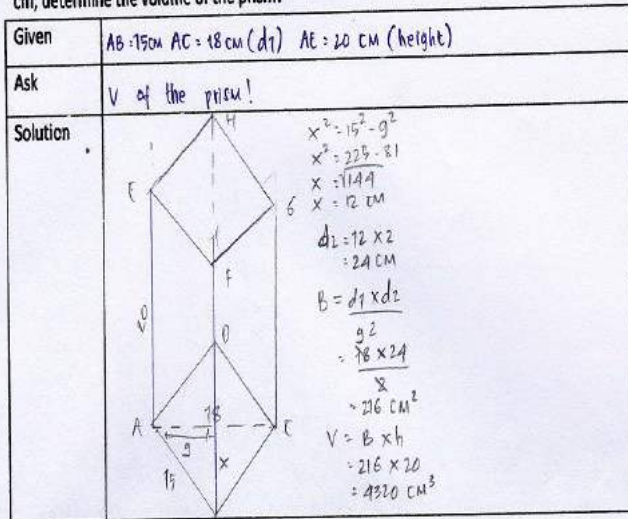 cm, determine the volume of the prism.
Given
AB = 15cm AC = 18 cm (d1) AE = 20 cm (height)
Ask
V of the prism!
Solution
H
E
G
F
20
D
A
18
C
9
15
x
x² = 15² - 9²
x² = 225 - 81
x = √144
x = 12 cm
d2 = 12 x 2
= 24 cm
B = d1 x d2
2
9
= 18 x 24
2
= 216 cm²
V = B x h
= 216 x 20
= 4320 cm³